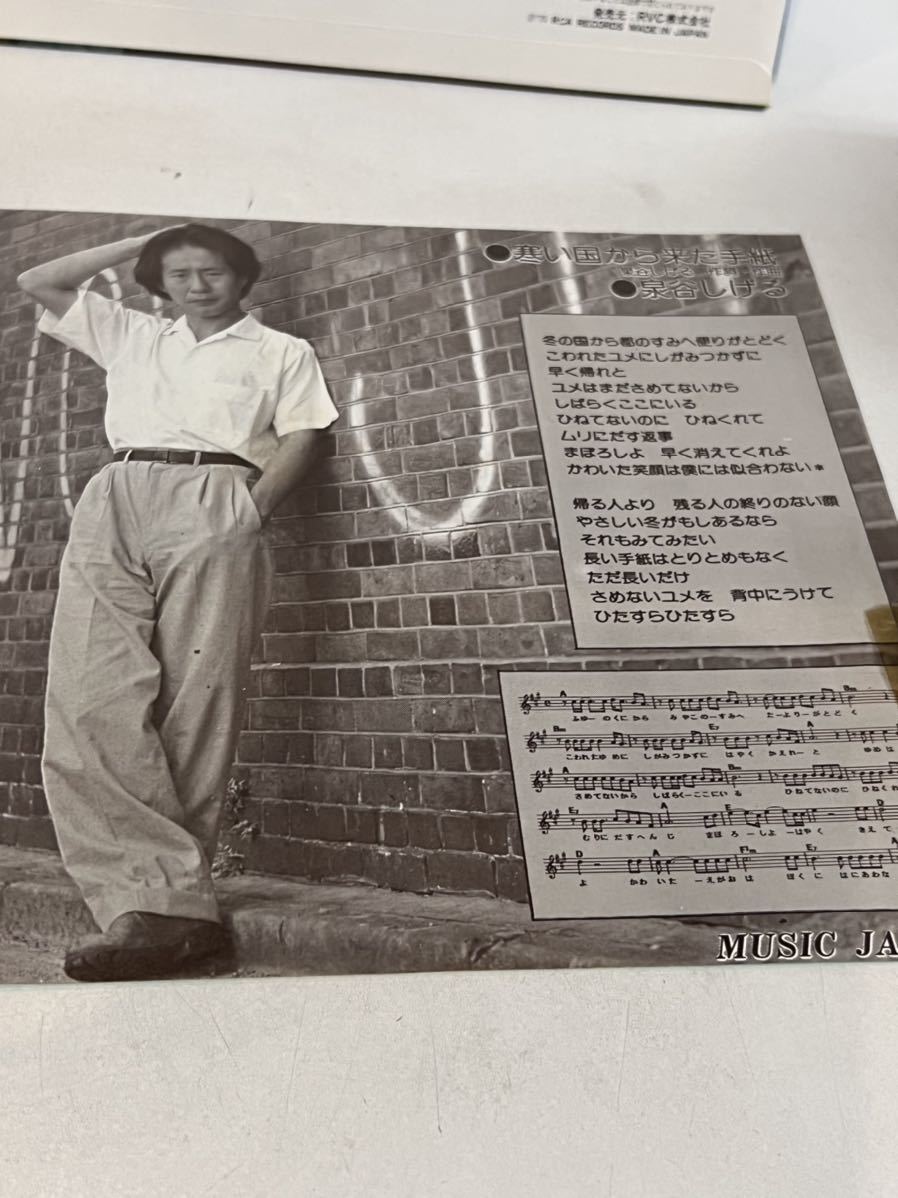 発売元：RVC株式会社
RCA RECORDS MADE IN JAPAN
●寒い国から来た手紙
泉谷しげる 作詞・作曲
●泉谷しげる
冬の国から都のすみへ便りがとどく
こわれたユメにしがみつかずに
早く帰れと
ユメはまださめてないから
しばらくここにいる
ひねてないのに ひねくれて
ムリにだす返事
まぼろしよ 早く消えてくれよ
かわいた笑顔は僕には似合わない＊
帰る人より 残る人の終りのない顔
やさしい冬がもしあるなら
それもみてみたい
長い手紙はとりとめもなく
ただ長いだけ
さめないユメを 背中にうけて
ひたすらひたすら
A Bm
ふゆー のくに から みやこのーすみへ たーよりーがとど く
Bm E7 A
こわれたゆ めに しがみつかずに はやく かえれーと ゆめは
A Bm
さめてないから しばらくーここにい る ひねてないのに ひねくれ
E7 A E D
むりにだすへん じ まぼ ろーしよ ーはやく きえ て
D A F#m E7 A
よ かわいた ーえがお は ぼくに はにあわな
MUSIC JA